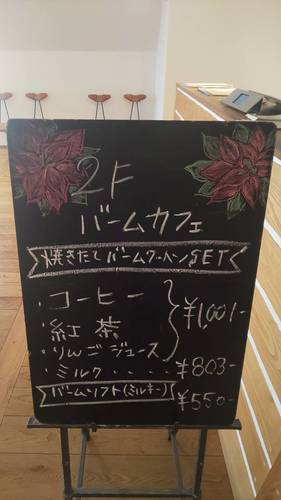 2F
バームカフェ
焼きたてバームクーヘンSET
・コーヒー
・紅茶
・りんごジュース
¥1,001-
・ミルク・・・・¥803-
バームソフト(ミルキー) ¥550-